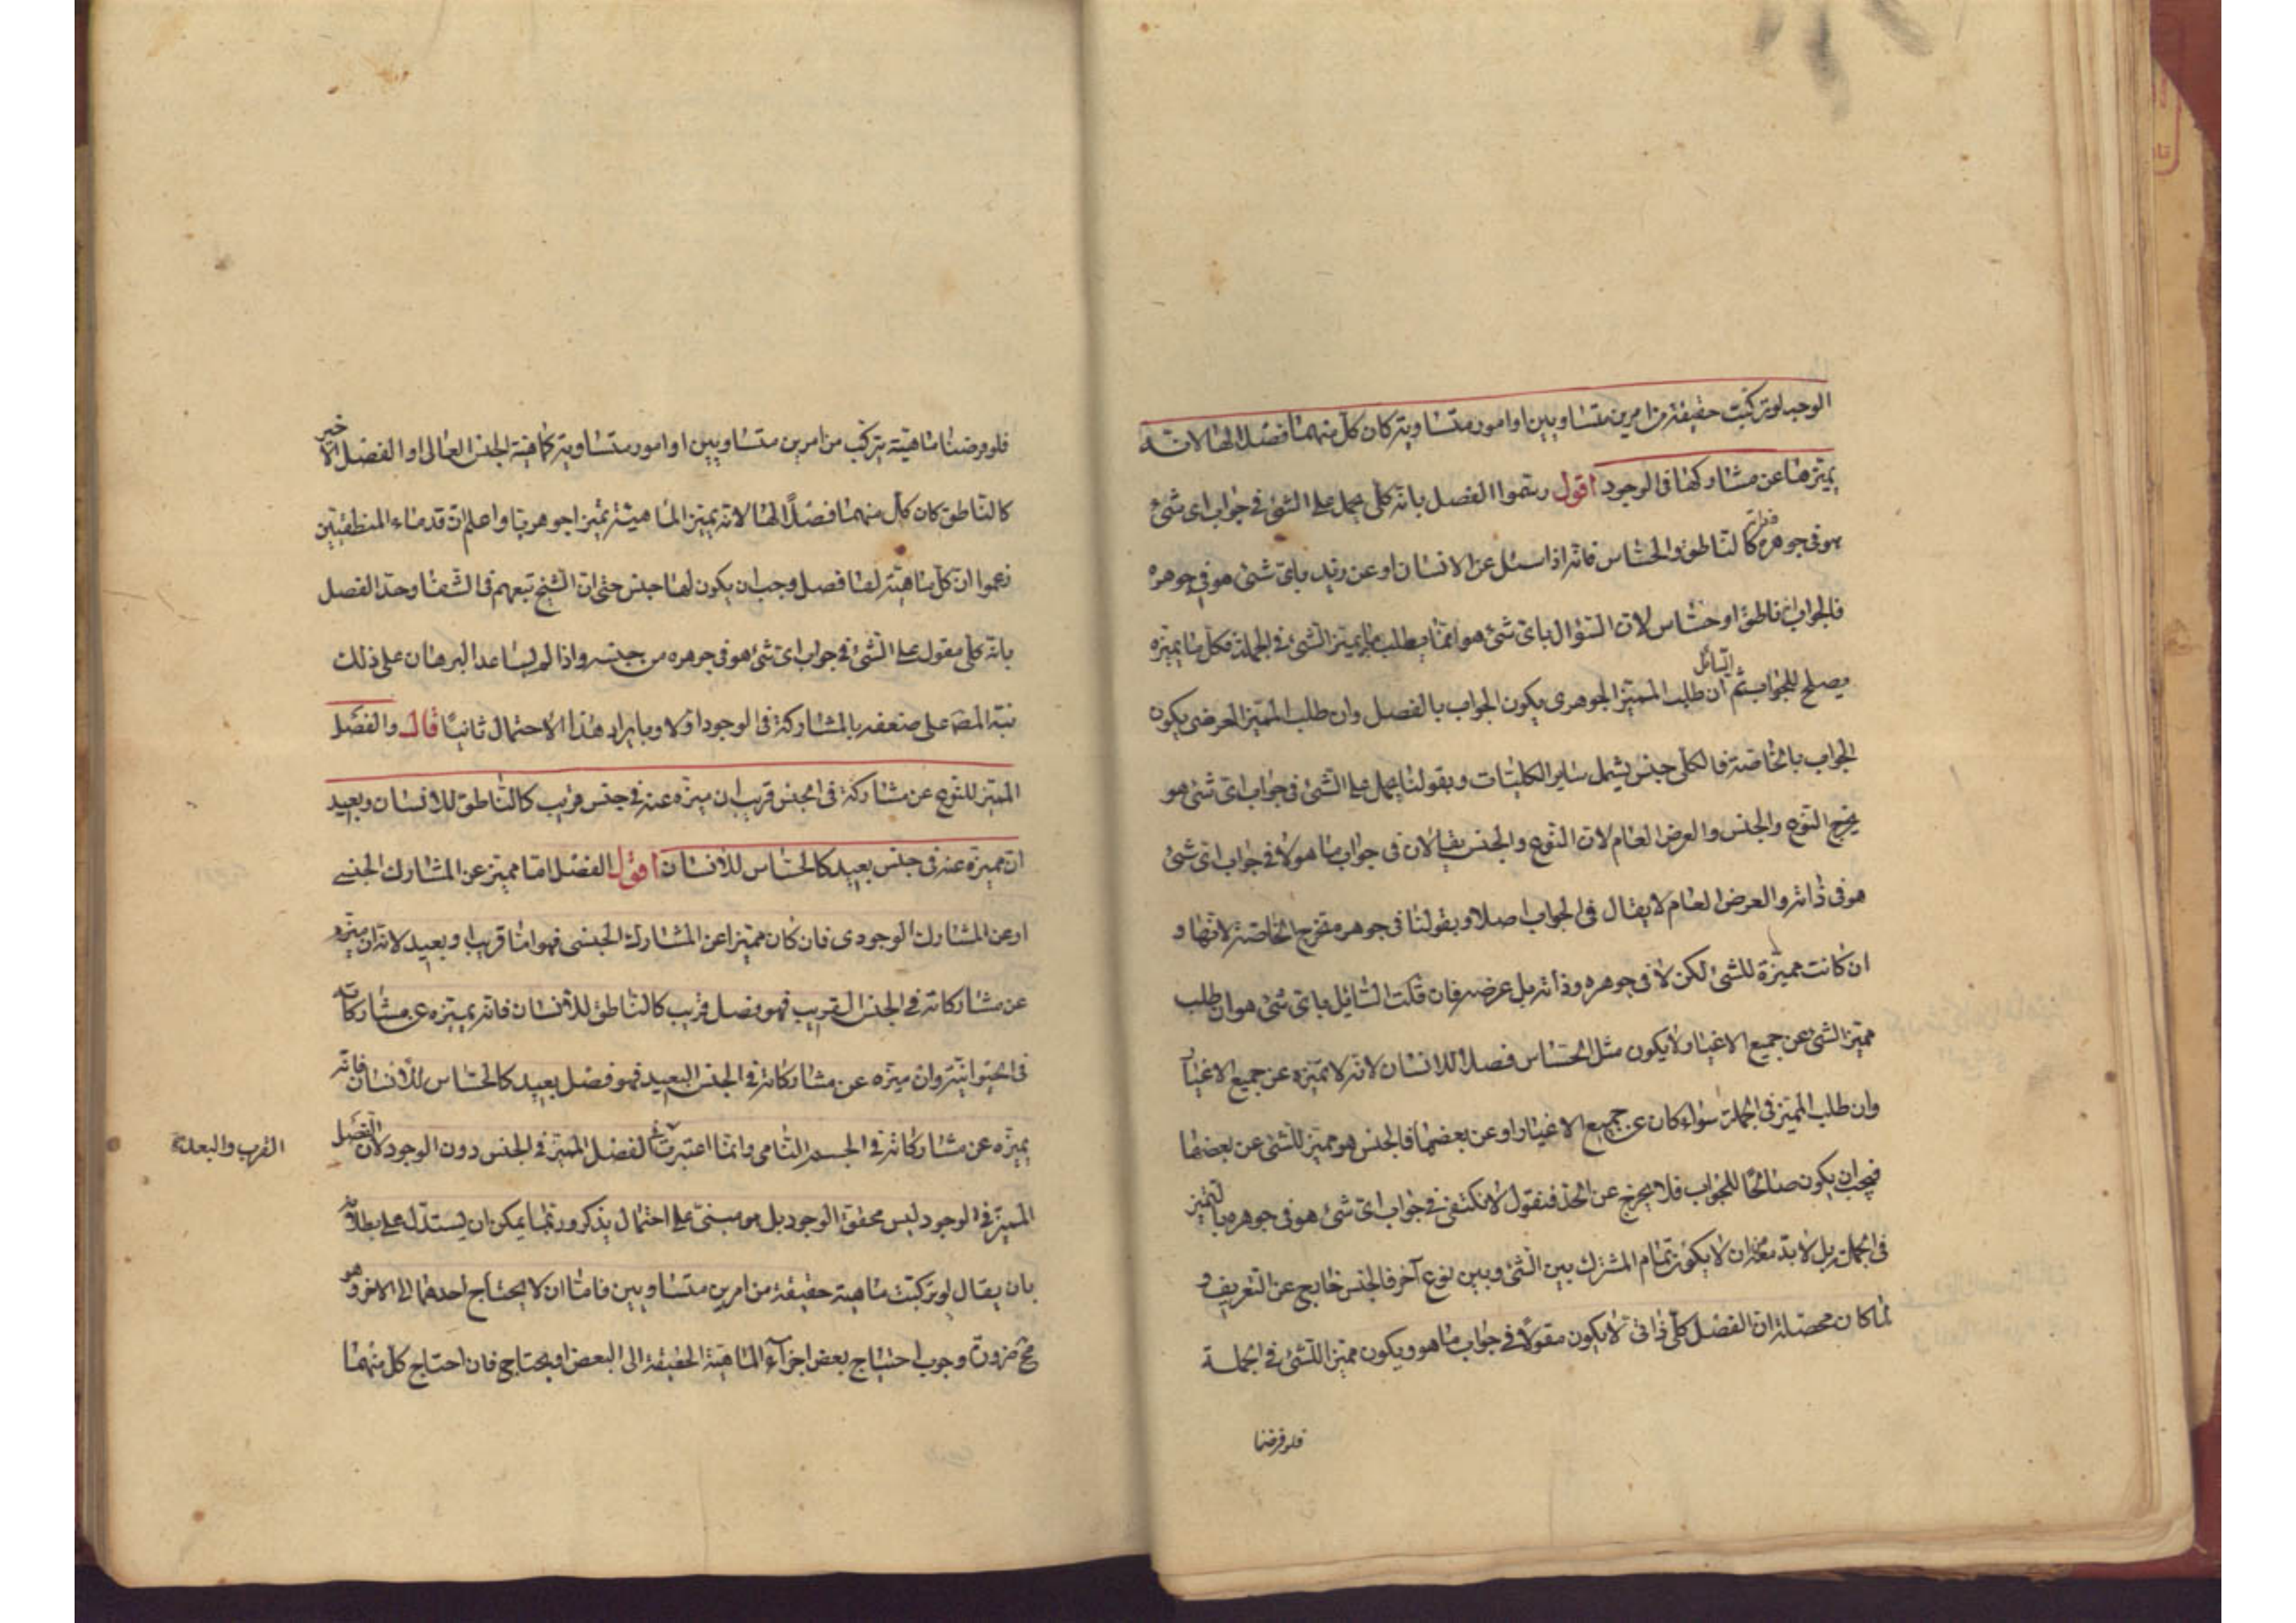 الوجه لو تركبت حقيقة من امرين متساويين او امور متساوية كان كل منهما فصلا لها لانه
يميزها عن مشاركها فى الوجود اقول رسموا الفصل بانه كلى يحمل على الشئ فى جواب اى شئ
هو فى جوهره كالناطق والحساس فانه اذا سئل عن الانسان او عن زيد باى شئ هو فى جوهره
فالجواب انه ناطق او حساس لان السؤال باى شئ هو انما يطلب به ما يميز الشئ فى الجملة فكل ما يميزه
يصلح للجواب ثم ان طلب السائل المميز الجوهرى يكون الجواب بالفصل وان طلب المميز العرضى يكون
الجواب بالخاصة فالكلى جنس يشمل ساير الكليات وبقولنا يحمل على الشئ فى جواب اى شئ هو
يخرج النوع والجنس والعرض العام لان النوع والجنس يقالان فى جواب ما هو لا فى جواب اى شئ
هو فى ذاته والعرض العام لا يقال فى الجواب اصلا وبقولنا فى جوهره يخرج الخاصة لانها و
ان كانت مميزة للشئ لكن لا فى جوهره وذاته بل عرضه فان قلت السائل باى شئ هو ان طلب
مميز الشئ عن جميع الاغيار لا يكون مثل الحساس فصلا للانسان لانه لا يميزه عن جميع الاغيار
وان طلب المميز فى الجملة سواء كان عن جميع الاغيار او عن بعضها فالجنس هو مميز للشئ عن بعضها
فيجب ان يكون صالحا للجواب فلا يخرج عن الحد فنقول لا نكتفى فى جواب اى شئ هو فى جوهره بالتميز
فى الجملة بل لا بد معه ان لا يكون تمام المشترك بين الشئ وبين نوع آخر فالجنس خارج عن التعريف و
لما كان محصله ان الفصل كلى ذاتى لا يكون مقولا فى جواب ما هو ويكون مميزا للشئ فى الجملة
فلو فرضنا
فلو فرضنا ماهية يتركب من امرين متساويين او امور متساوية كماهية الجنس العالى او الفصل الاخير
كالناطق كان كل منهما فصلاً لها لانه يميز الماهية تميزا جوهريا واعلم ان قدماء المنطقيين
زعموا ان كل ماهية لها فصل وجب ان يكون لها جنس حتى ان الشيخ تبعهم فى الشفا وحد الفصل
بانه كلى مقول على الشئ فى جواب اى شئ هو فى جوهره من جنسه واذا لم يساعد البرهان على ذلك
نبه المصـ على ضعفه بالمشاركة فى الوجود اولا وبايراد هذا الاحتمال ثانياً قال والفصل
المميز للنوع عن مشاركه فى الجنس قريب ان ميزه عنه فى جنس قريب كالناطق للانسان وبعيد
ان ميزه عنه فى جنس بعيد كالحساس للانسان اقول الفصل اما مميز عن المشارك الجنسى
او عن المشارك الوجودى فان كان مميزا عن المشارك الجنسى فهو اما قريب او بعيد لانه ان ميزه
عن مشاركاته فى الجنس القريب فهو فصل قريب كالناطق للانسان فانه يميزه عن مشاركاته
فى الحيوانية وان ميزه عن مشاركاته فى الجنس البعيد فهو فصل بعيد كالحساس للانسان فانه
يميزه عن مشاركاته فى الجسم النامى وانما اعتبرت فى الفصل المميز فى الجنس دون الوجود لان الفصل
القرب والبعد
المميز فى الوجود ليس محقق الوجود بل هو مبنى على احتمال يذكر وربما يمكن ان يستدل على بطلانه
بان يقال لو تركبت ماهية حقيقة من امرين متساويين فاما ان لا يحتاج احدهما الى الاخر وهو
مح ضرورة وجوب احتياج بعض اجزآء الماهية الحقيقة الى البعض او يحتاج فان احتاج كل منهما